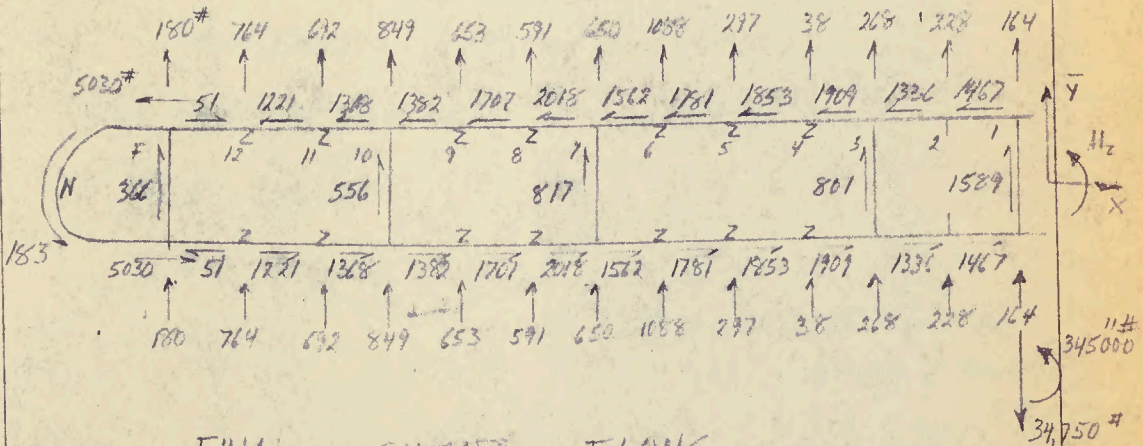 180# 764 692 849 653 591 650 1088 297 38 268 228 164
5030# 51 1221 1368 1382 1707 2018 1562 1781 1853 1909 1336 1467
Y
F 12 11 10 9 8 7 6 5 4 3 2 1
Z Z Z Z Z Z Z Z
Mz
N 366 556 817 801 1589
X
183
Z Z Z Z Z Z Z Z
5030 51 1221 1368 1382 1707 2018 1562 1781 1853 1909 1336 1467
180 764 692 849 653 591 650 1088 297 38 268 228 164
345000"#
34,750#